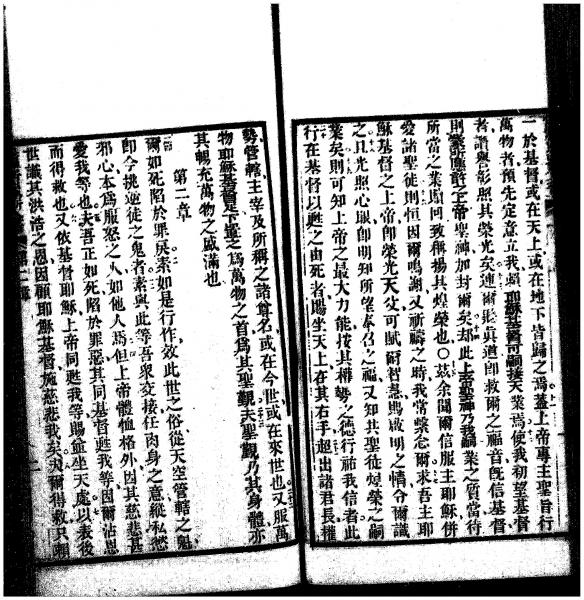 一於基督或在天上或在地下皆歸之焉蓋上帝專主聖旨行
萬物者預先定意立我頼耶穌基督可嗣接天業焉使我初望基督
者讚譽彰照其榮光矣連爾聽眞道卽救爾之福音旣信基督
則蒙應許之上帝聖神加封爾矣却此上帝聖神乃我嗣業之質當待
所當之業贖回致稱揚其煌榮也○茲余聞爾信服主耶穌併
愛諸聖徒則恒因爾鳴謝又祈禱之時我常繫念爾求吾主耶
穌基督之上帝卽榮光天父可賦爾智慧照啟明之情令爾識
之且光照心眼卽明知所望奉召之福又知共聖徒煌榮之嗣
業矣則可知上帝之最大力能按其權勢之德行祐我信者此
行在基督以甦之由死者賜坐天上在其右手超出諸君長權
勢管轄主宰及所稱之諸尊名或在今世或在來世也又服萬
物耶穌基督足下壐之爲萬物之首爲其聖觀夫聖觀乃其身體亦
其暢充萬物之盛滿也
第二章
爾如死陷於罪戾素如是行作效此世之俗從天空管轄之魁
卽今挑逆徒之鬼者素與此等吾衆交接任肉身之意縱私慾
邪心本爲服怒之人如他人焉但上帝體恤格外因其慈悲甚
愛我等也夫吾正如死陷於罪惡其同基督甦我等因爾沾恩
而得救也又依基督耶穌上帝同甦我等賜並坐天處以表後
世識其洪浩之恩因顧耶穌基督施慈悲我矣夫爾得救只頼